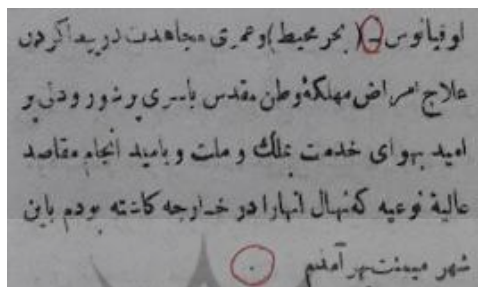 اوقیانوس - (بحر محیط) و عمری مجاهدت در پیدا کردن
علاج امراض مهلکهٔ وطن مقدس باسری پرشور و دلی پر
امید بهوای خدمت بملک و ملت و بامید انجام مقاصد
عالیهٔ نوعیه که نهال انهارا در خارجه کاشته بودم باین
شهر میمنت بهر آمدیم .